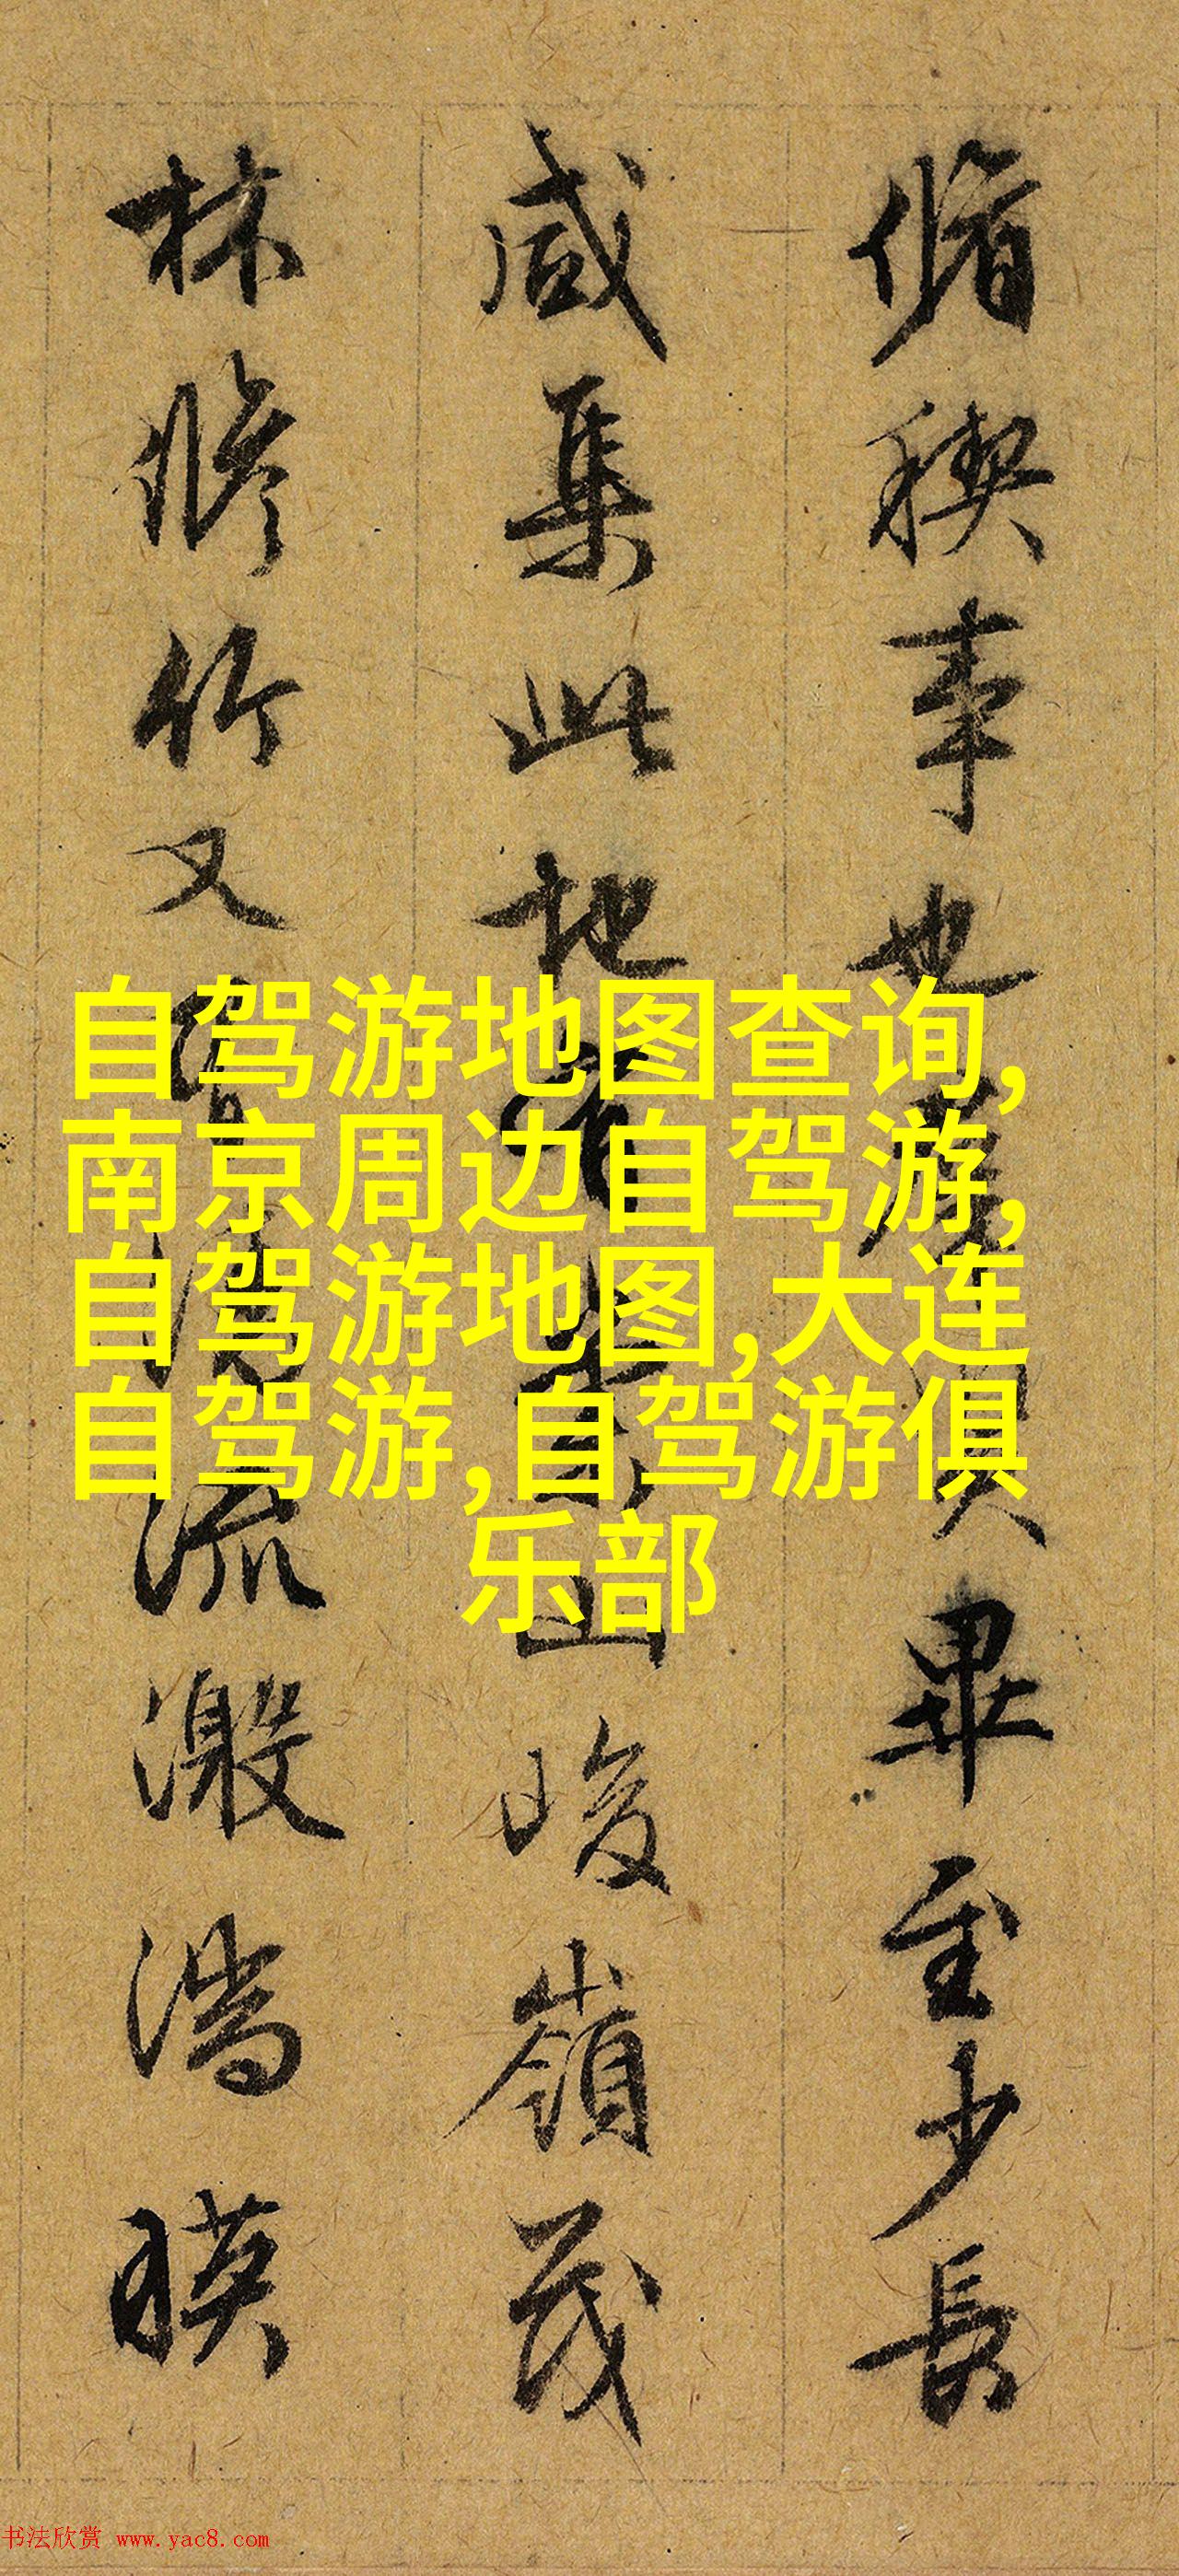 脩稧事也畢至少長
咸集此地有山峻嶺茂
林脩竹又有清流激湍暎
自驾游地图查询,
南京周边自驾游,
自驾游地图,大连
自驾游,自驾游俱
乐部
书法欣赏 www.yac8.com